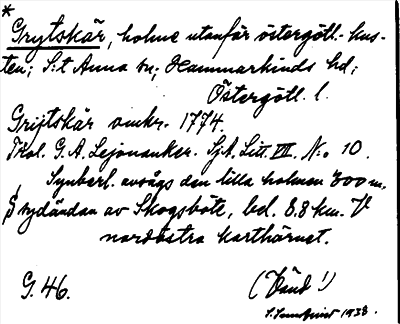 *
Grytskär, holme utanför östergötl.-kus-
ten; S:t Anna sn; Hammarkinds hd;
Östergötl. l.
Grijtskär omkr. 1774.
Trol. G.A. Lejonanker. Sjk. Litt. VII. N:o 10.
Synbarl. avsågs den lilla holmen 300 m.
S sydändan av Skogsböte, bel. 8.8 km. V
nordöstra karthörnet.
G. 46.
(Vänd!)
1938